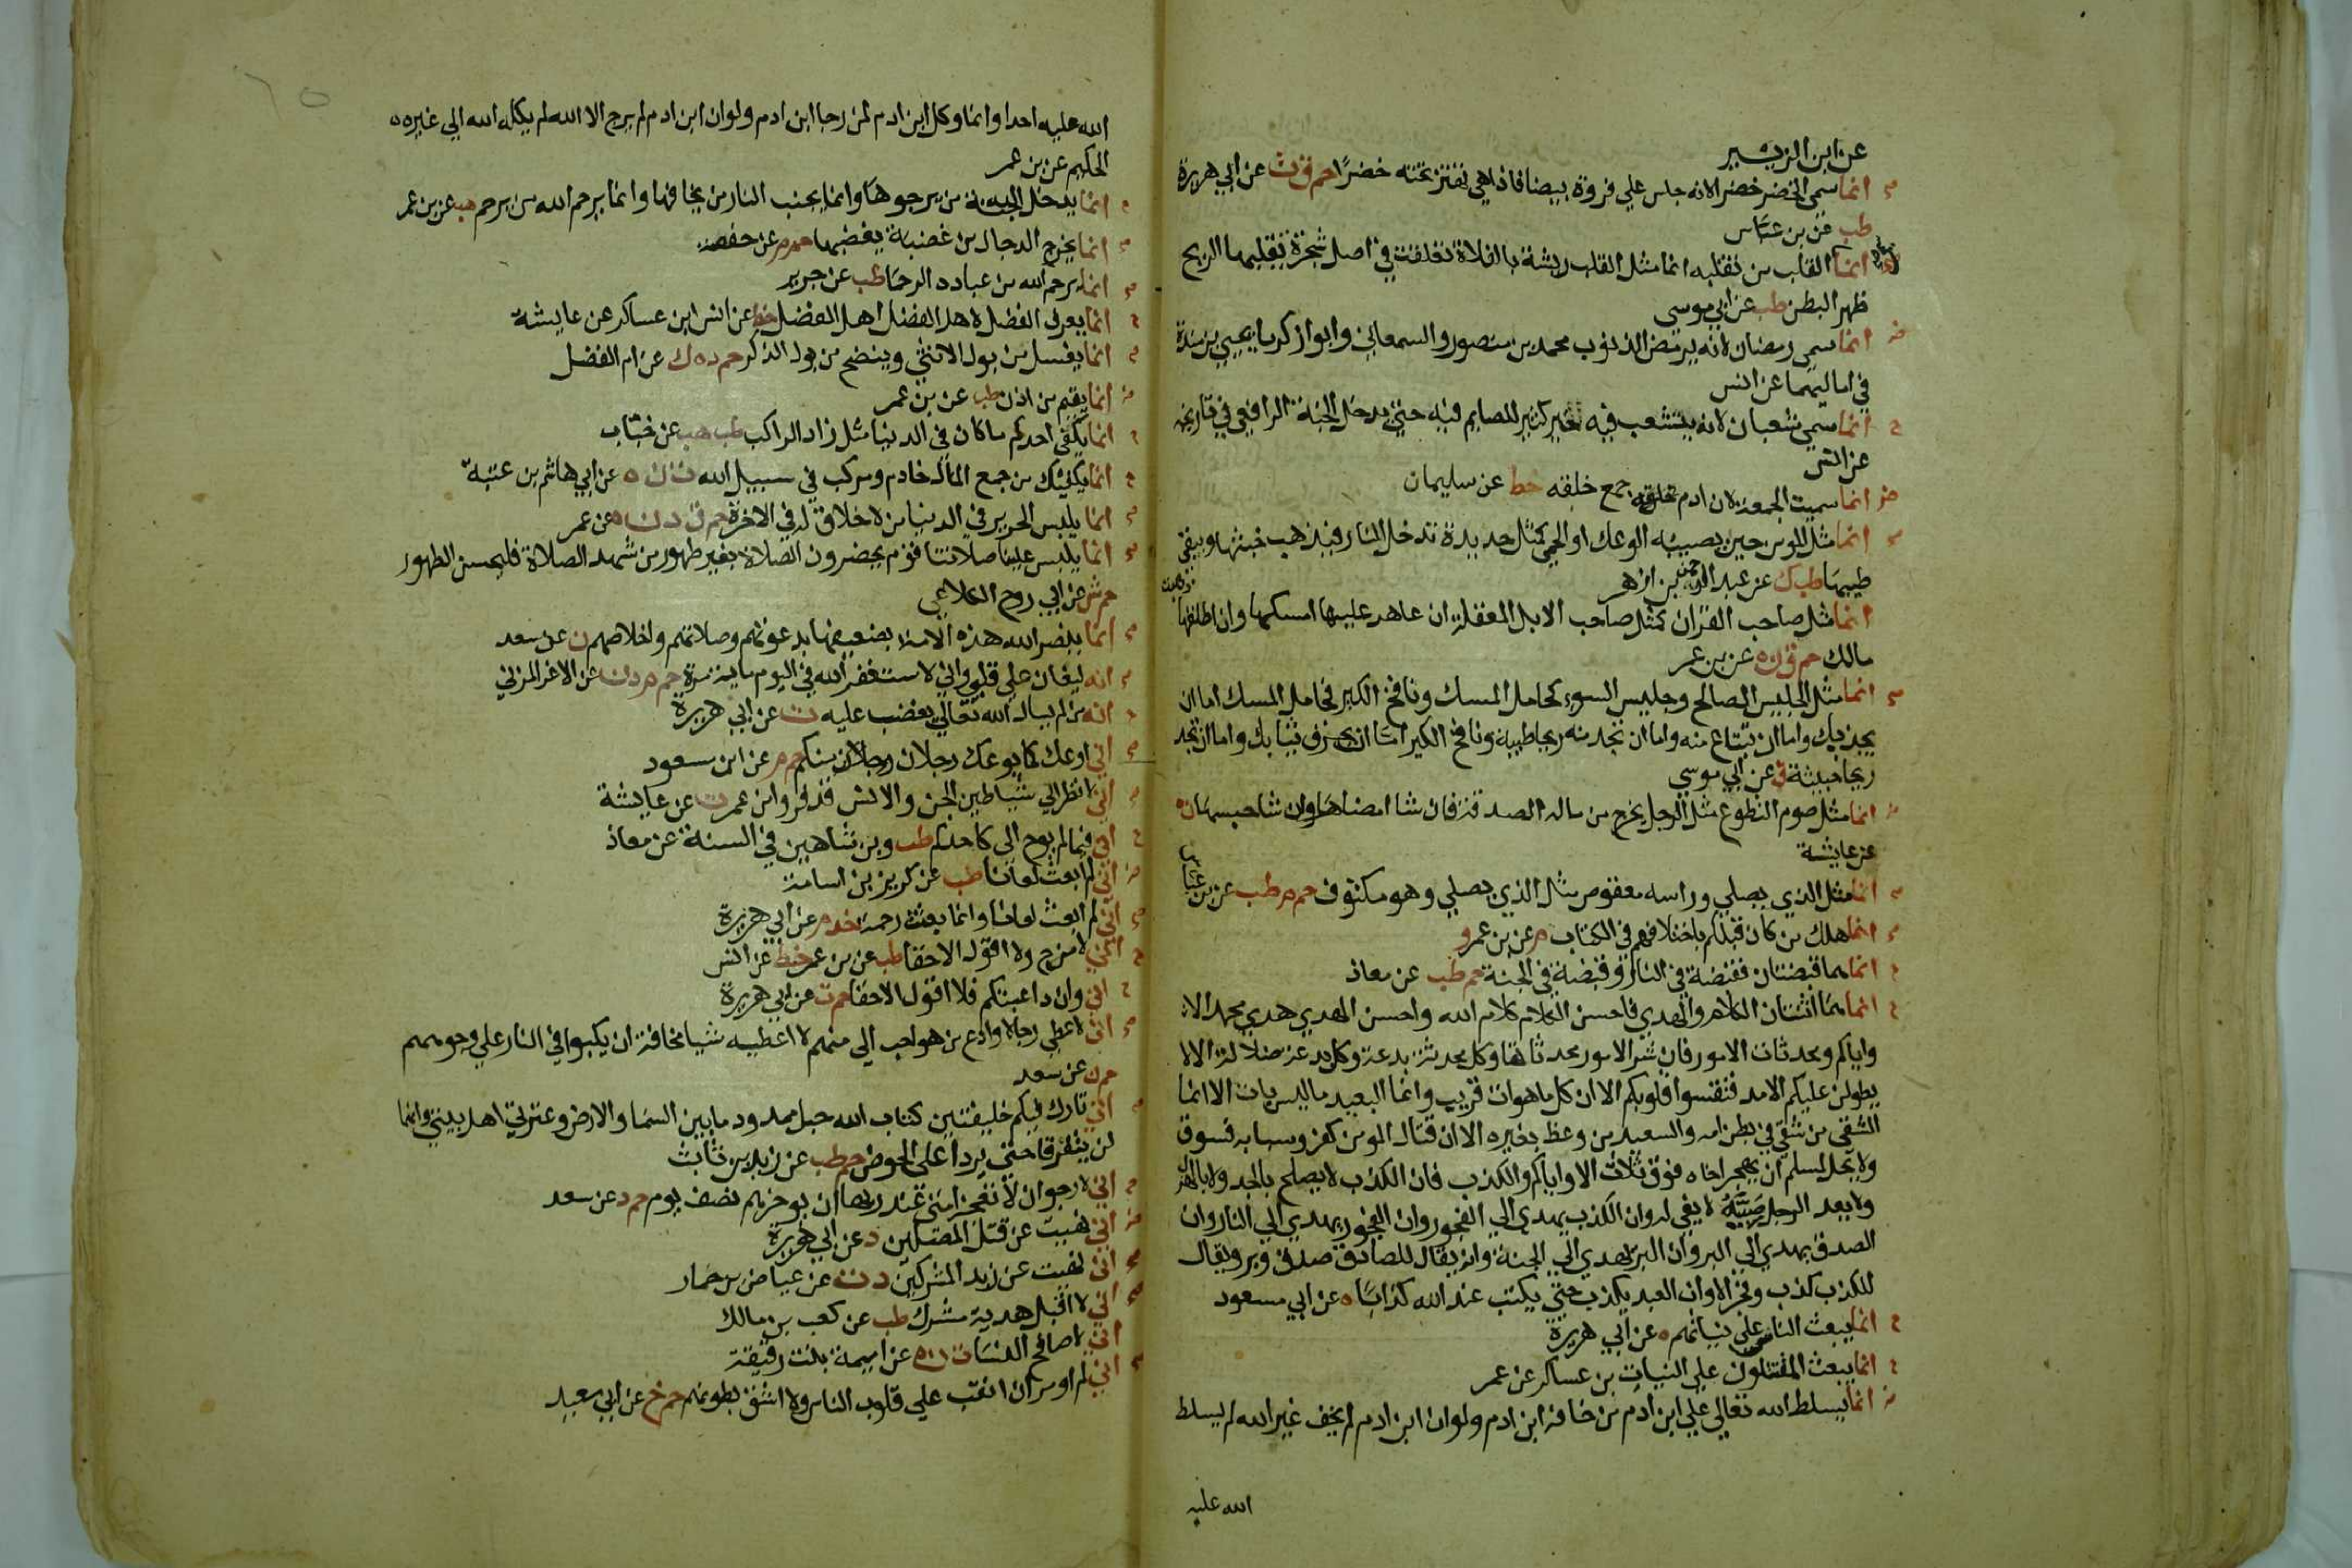 عن ابن الزبير
انما سمي الخضر خضرا لانه جلس علي فروة بيضا فاذا هي تهتز تحته خضرا حم ق ت عن ابي هريرة
طب عن بن عباس
انما القلب من تقلبه انما مثل القلب ريشة بالفلاة تعلقت في اصل شجرة تقلبها الريح
ظهر البطن طب عن ابي موسى
انما سمي رمضان لانه يرمض الذنوب محمد بن منصور والسمعاني وابوا زكريا يحيي بن مندة
في اماليهما عن انس
انما سمي شعبان لانه يتشعب فيه خير كثير للصايم فيه حتى يدخل الجنة الرافعي في تاريخه
عن انس
انما سميت الجمعة لان ادم جمع خلقه خط عن سليمان
انما مثل المومن حين يصيبه الوعك او الحمي كمثل حديدة تدخل النار فيذهب خبثها ويبقي
طيبها طب ك عن عبد الرحمن بن ازهر
انما مثل صاحب القران كمثل صاحب الابل المعقلة ان عاهد عليها امسكها وان اطلقها ذهبت
مالك حم ق ن ه عن بن عمر
انما مثل الجليس الصالح وجليس السوء كحامل المسك ونافخ الكير فحامل المسك اما ان
يحذيك واما ان تبتاع منه واما ان تجد منه ريحا طيبة ونافخ الكير اما ان يحرق ثيابك واما ان تجد
ريحا خبيثة ق عن ابي موسي
انما مثل صوم التطوع مثل الرجل يخرج من ماله الصدقة فان شا امضاها وان شا حبسها ن ه
عن عايشة
انما مثل الذي يصلي وراسه معقوص مثل الذي يصلي وهو مكتوف حم م طب عن بن عباس
انما هلك من كان قبلكم باختلافهم في الكتاب م عن بن عمرو
انما هما قبضتان فقبضة في النار وقبضة في الجنة حم طب عن معاذ
انما هما اثنتان الكلام والهدي فاحسن الكلام كلام الله واحسن الهدي هدي محمد الا
واياكم ومحدثات الامور فان شر الامور محدثاتها وكل محدثة بدعة وكل بدعة ضلالة الا لا
يطولن عليكم الامد فتقسوا قلوبكم الا ان كل ما هو ات قريب وانما البعيد ما ليس بات الا انما
الشقي من شقي في بطن امه والسعيد من وعظ بغيره الا ان قتال المومن كفر وسبابه فسوق
ولا يحل لمسلم ان يهجر اخاه فوق ثلاث الا واياكم والكذب فان الكذب لا يصلح بالجد ولا بالهزل
ولا يعد الرجل صبيه لا يفي له وان الكذب يهدي الي الفجور وان الفجور يهدي الي النار وان
الصدق يهدي الي البر وان البر يهدي الي الجنة وانه يقال للصادق صدق وبر ويقال
للكذب كذب وفجر الا وان العبد يكذب حتى يكتب عند الله كذابا ه عن ابي مسعود
انما يبعث الناس علي نياتهم ه عن ابي هريرة
انما يبعث المقتتلون علي النيات بن عساكر عن عمر
انما يسلط الله تعالي علي ابن ادم من خافه ابن ادم ولو ان ابن ادم لم يخف غير الله لم يسلط
الله عليه
الله عليه احدا وانما وكل ابن ادم لمن رجا ابن ادم ولو ان ابن ادم لم يرج الا الله لم يكله الله الي غيره ه
الحكيم عن بن عمر
انما يدخل الجنة من يرجوها وانما يجنب النار من يخافها وانما يرحم الله من يرحم هب عن بن عمر
انما يخرج الدجال من غضبة يغضبها حم م عن حفصة
انما يرحم الله من عباده الرحما طب عن جرير
انما يعرف الفضل لاهل الفضل اهل الفضل خط عن انس ابن عساكر عن عايشة
انما يغسل من بول الانثي وينضح من بول الذكر حم د ه ك عن ام الفضل
انما يقيم من اذن طب عن بن عمر
انما يكفي احدكم ما كان في الدنيا مثل زاد الراكب طب هب عن خباب
انما يكفيك من جمع المال خادم ومركب في سبيل الله ت ن ه عن ابي هاشم بن عتبة
انما يلبس الحرير في الدنيا من لا خلاق له في الاخرة حم ق د ن ه عن عمر
انما يلبس علينا صلاتنا قوم يحضرون الصلاة بغير طهور من شهد الصلاة فليحسن الطهور
حم ش عن ابي روح الكلاعي
انما ينصر الله هذه الامة بضعيفها بدعوتهم وصلاتهم واخلاصهم ن عن سعد
انه ليغان علي قلبي واني لاستغفر الله في اليوم ماية مرة حم م د ن عن الاغر المزني
انه من لم يسال الله تعالي يغضب عليه ت عن ابي هريرة
اني اوعك كما يوعك رجلان منكم حم م عن ابن مسعود
اني لانظر الي شياطين الجن والانس قد فروا من عمر ت عن عايشة
اني فيما لم يوح الي كاحدكم طب وبن شاهين في السنة عن معاذ
اني لم ابعث لعانا طب عن كريز بن اسامة
اني لم ابعث لعانا وانما بعثت رحمة خد م عن ابي هريرة
اني لامزح ولا اقول الا حقا طب عن بن عمر خط عن انس
اني وان داعبتكم فلا اقول الا حقا حم ت عن ابي هريرة
اني لاعطي رجالا وادع من هو احب الي منهم لا اعطيه شيا مخافة ان يكبوا في النار علي وجوههم
حم ن عن سعد
اني تارك فيكم خليفتين كتاب الله حبل ممدود ما بين السما والارض وعترتي اهل بيتي وانهما
لن يتفرقا حتى يردا على الحوض حم طب عن زيد بن ثابت
اني لارجوا ان لا تعجز امتي عند ربها ان يوخرهم نصف يوم حم د عن سعد
اني نهيت عن قتل المصلين د عن ابي هريرة
اني نهيت عن زبد المشركين د ت عن عياض بن حمار
اني لا اقبل هدية مشرك طب عن كعب بن مالك
اني لا صافح النسا ت ن ه عن اميمة بنت رقيقة
اني لم اومر ان انقب علي قلوب الناس ولا اشق بطونهم حم خ عن ابي سعيد